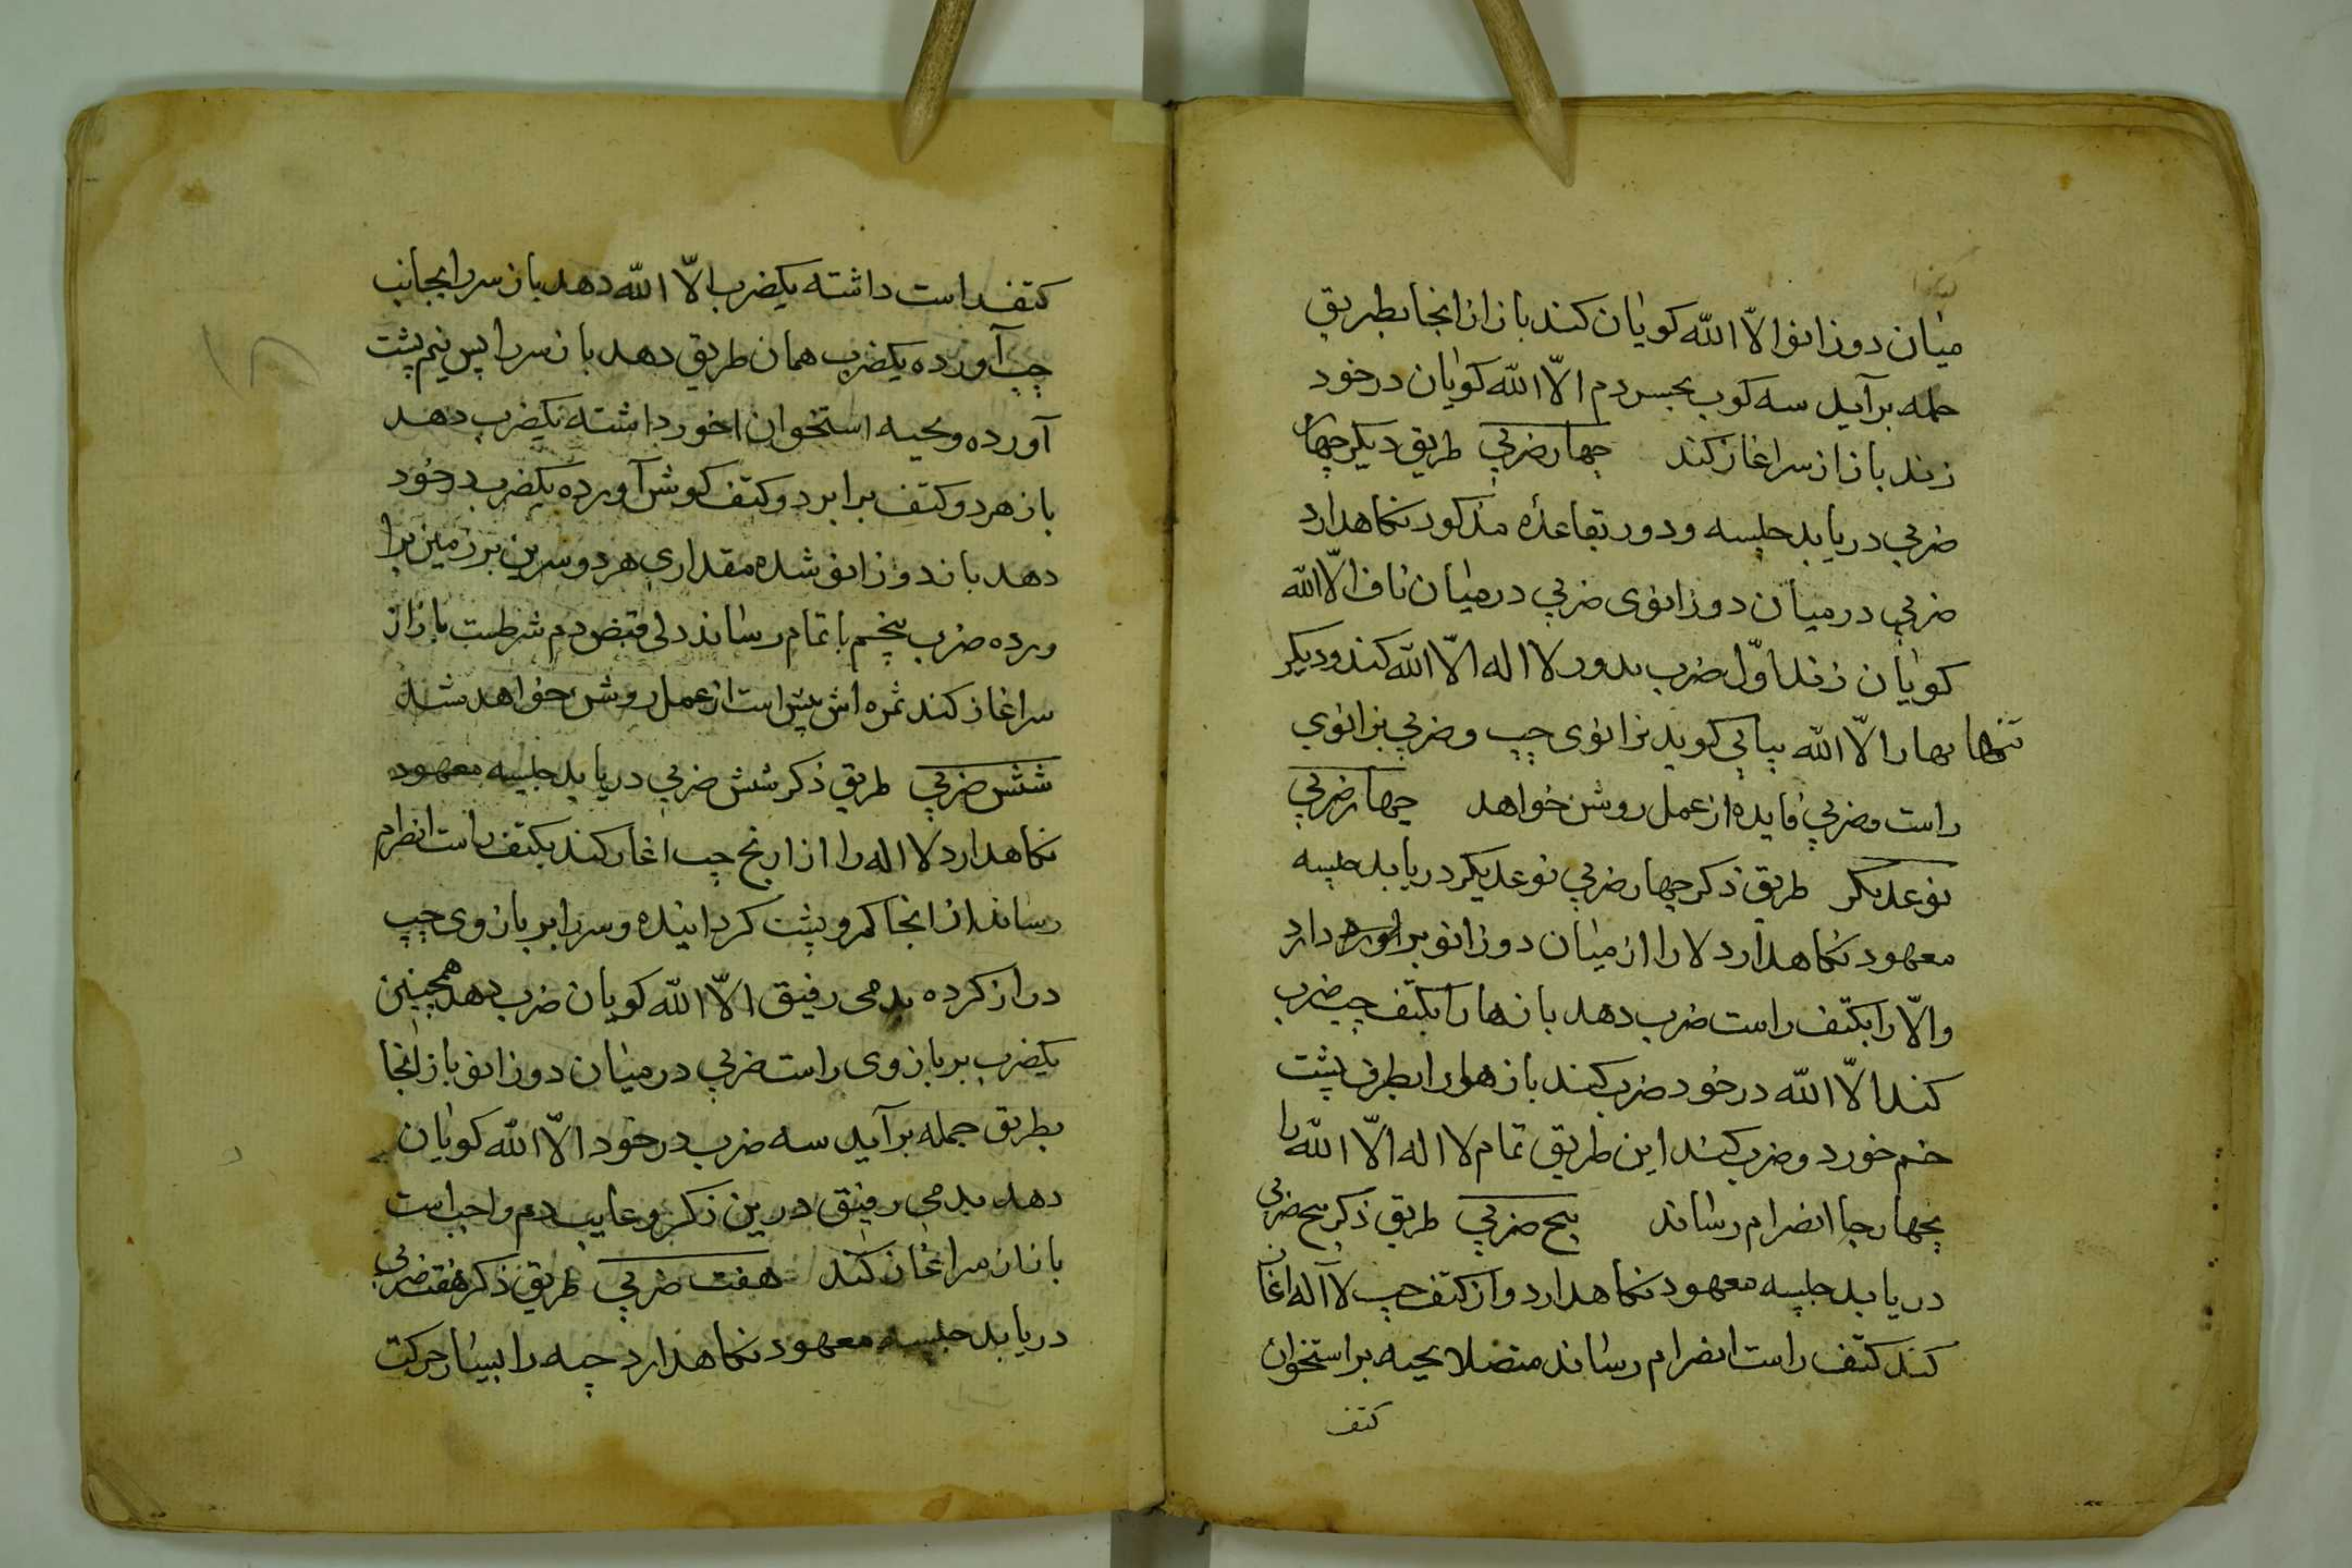 میان دو زانو الّا اللّه کویان کند باز از انجا بطریق
حمله برآید سه کوب بحبس دم الّا اللّه کویان در خود
زند باز از سر اغاز کند چهار ضربي طریق دیکر چهار
ضربي دریابد جلسه و دور بقاعده مذکور نکاهدارد
ضربي در میان دو زانوی ضربي در میان ناف الّا اللّه
کویان زند اوّل ضرب بدور لا اله الّا اللّه کند و دیکر
تنها بها را الّا اللّه بیابي کوید بزانوی چپ و ضربي بزانوي
راست و ضربي فایده از عمل روشن خواهد چهار ضربي
نوعدیکر طریق ذکر چهار ضربي نوعدیکر دریابد جلسه
معهود نکاهدارد لا را از میان دو زانو براورده دارد
و الّا را بکتف راست ضرب دهد باز ها را بکتف چپ ضرب
کند الّا اللّه در خود ضرب کند باز هو را بطرف پشت
خم خورد و ضرب کند این طریق تمام لا اله الّا اللّه را
بچهار جا انضرام رساند پنج ضربي طریق ذکر پنج ضربي
دریابد جلسه معهود نکاهدارد و از کتف چپ لا آله اغاز
کند کتف راست انضرام رساند متصلا بحیه بر استخوان
کتف
کتف راست داشته یکضرب الّا اللّه دهد باز سر را بجانب
چپ آورده یکضرب همان طریق دهد باز سر را پس نیم پشت
آورده و بحیه استخوان اخور داشته یکضرب دهد
باز هر دو کتف برابر دو کتف کوش آورده یکضرب در خود
دهد باز دو زانو شده مقداری هر دو سرین بر زمین برا
ورده ضرب پنجم با تمام رساند دلی قبض دم شرطست باز از
سر اغاز کند ثمره اش پیش است از عمل روشن خواهد شد
شش ضربي طریق ذکر شش ضربي دریابد جلسه معهود
نکاهدارد لا اله را از ارنج چپ اغاز کند بکتف راست انظرام
رساند از انجا کمر و پشت کردانیده و سر را بر بازوی چپ
دراز کرده بدمی رفیق الّا اللّه کویان ضرب دهد همچنین
یکضرب بر بازوی راست ضربي در میان دو زانو باز انجا
بطریق جمله برآید سه ضرب در خود الّا اللّه کویان
دهد بدمی رفیق درین ذکر رعایب دم واجب است
باز از سر اغاز کند هفت ضربي طریق ذکر هفت ضربي
دریابد جلسه معهود نکاهدارد جبه را بسیار حرکت